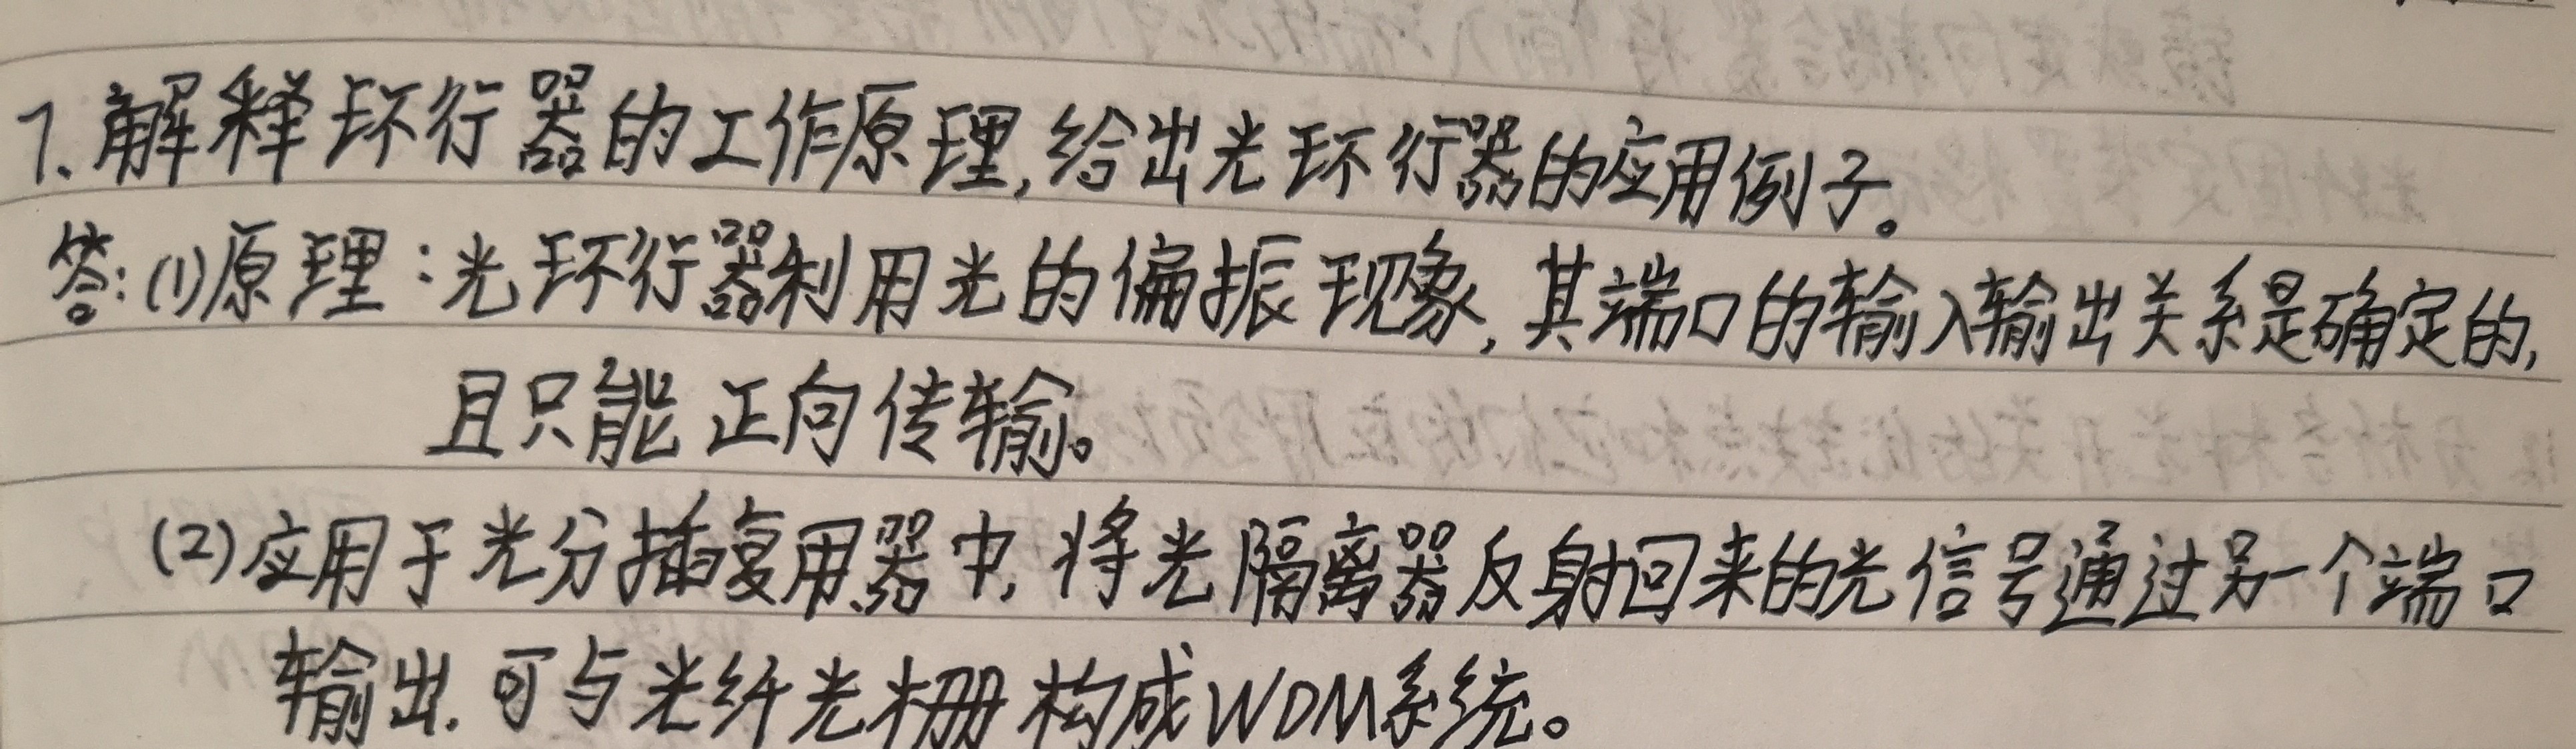 7.解释环行器的工作原理,给出光环行器的应用例子。
答:(1)原理:光环行器利用光的偏振现象,其端口的输入输出关系是确定的,
且只能正向传输。
(2)应用于光分插复用器中,将光隔离器反射回来的光信号通过另一个端口
输出.可与光纤光栅构成WDM系统。